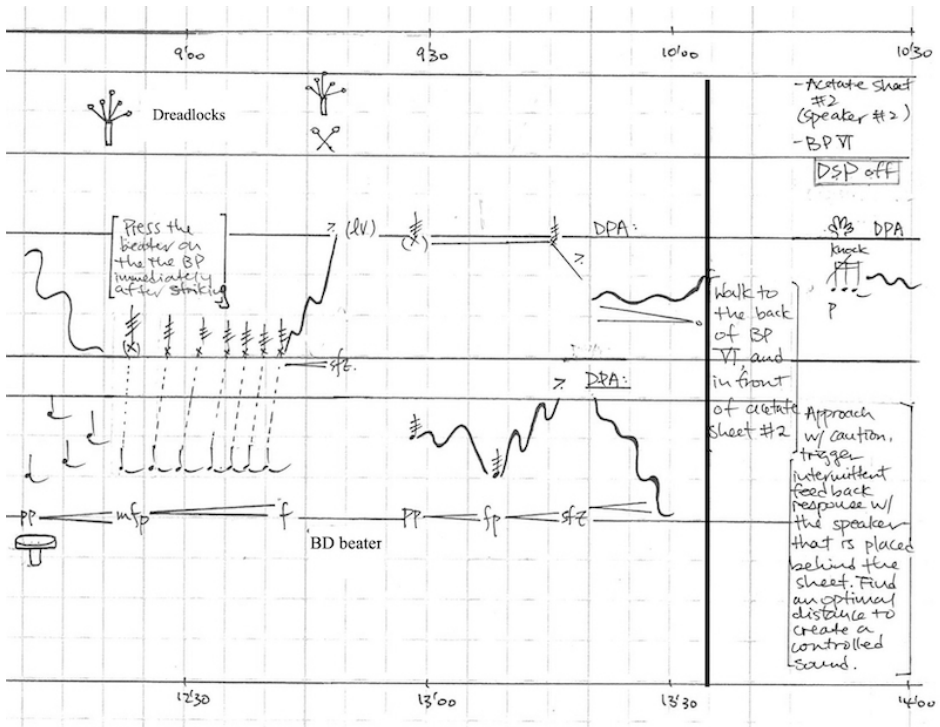 9'00
9'30
10'00
10'30
Dreadlocks
- Acetate sheet
#2
(speaker #2)
- BP VI
DSP off
Press the
beater on
the the BP
immediately
after striking
(lv)
DPA:
DPA
knock
P
(x)
(x)
sfz.
Walk to
the back
of BP
VI, and
in front
of acetate
sheet #2
DPA:
Approach
w/ caution,
trigger
intermittent
feedback
response w/
the speaker
that is placed
behind the
sheet. Find
an optimal
distance to
create a
controlled
sound.
PP
mfp
f
PP
fp
sfz
BD beater
12'30
13'00
13'30
14'00